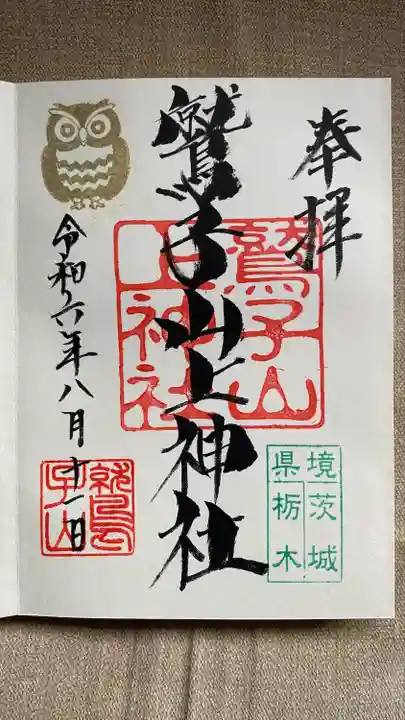 奉拝
鷲子山上神社
鷲子山
上神社
境 茨城
県 栃木
令和六年八月十一日
鷲
子山